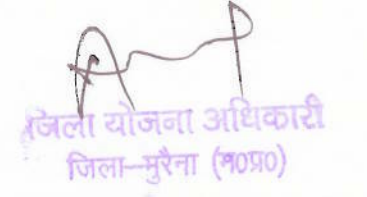 जिला योजना अधिकारी
जिला-मुरैना (म0प्र0)